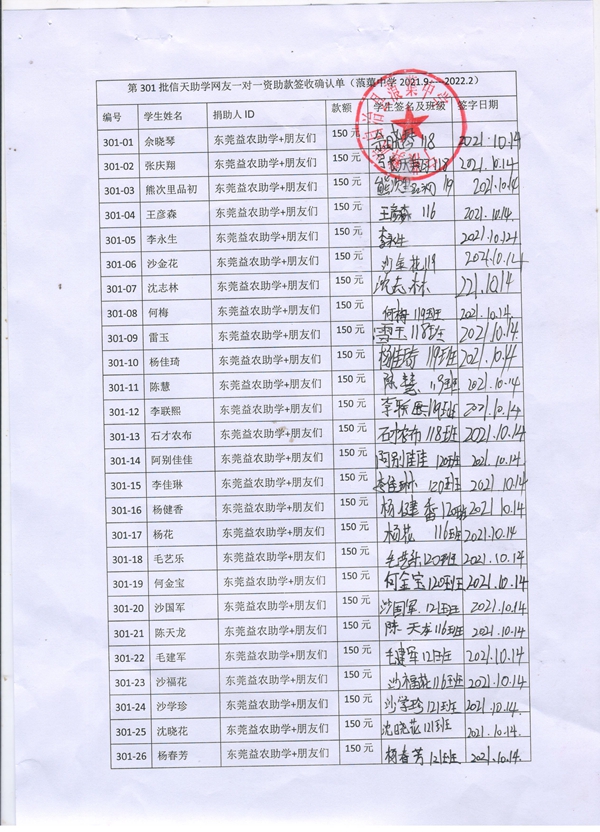 第 301 批信天助学网友一对一资助款签收确认单（蒗蕖中学 2021.9----2022.2）
编号 学生姓名 捐助人 ID 款额 学生签名及班级 签字日期
301-01 余晓琴 东莞益农助学+朋友们 150 元 118 2021.10.14
301-02 张庆翔 东莞益农助学+朋友们 150 元 118 2021.10.14
301-03 熊次里品初 东莞益农助学+朋友们 150 元 19 2021.10.14
301-04 王彦森 东莞益农助学+朋友们 150 元 王彦森 116 2021.10.14
301-05 李永生 东莞益农助学+朋友们 150 元 李永生 2021.10.12
301-06 沙金花 东莞益农助学+朋友们 150 元 沙金花 119 2021.10.14
301-07 沈志林 东莞益农助学+朋友们 150 元 沈志林 221.10.14
301-08 何梅 东莞益农助学+朋友们 150 元 何梅 119班 2021.10.14
301-09 雷玉 东莞益农助学+朋友们 150 元 雷玉 118班 2021.10.14
301-10 杨佳琦 东莞益农助学+朋友们 150 元 杨佳琦 119班 2021.10.14
301-11 陈慧 东莞益农助学+朋友们 150 元 陈慧 119班 2021.10.14
301-12 李联熙 东莞益农助学+朋友们 150 元 李联熙 119班 2021.10.14
301-13 石才农布 东莞益农助学+朋友们 150 元 石才农布 118班 2021.10.14
301-14 阿别佳佳 东莞益农助学+朋友们 150 元 阿别佳佳 120班 2021.10.14
301-15 李佳琳 东莞益农助学+朋友们 150 元 李佳琳 120班 2021.10.14
301-16 杨健香 东莞益农助学+朋友们 150 元 杨健香 120班 2021.10.14
301-17 杨花 东莞益农助学+朋友们 150 元 杨花 116班 2021.10.14
301-18 毛艺乐 东莞益农助学+朋友们 150 元 毛艺乐 120班 2021.10.14
301-19 何金宝 东莞益农助学+朋友们 150 元 何金宝 120班 2021.10.14
301-20 沙国军 东莞益农助学+朋友们 150 元 沙国军 121班 2021.10.14
301-21 陈天龙 东莞益农助学+朋友们 150 元 陈天龙 116班 2021.10.14
301-22 毛建军 东莞益农助学+朋友们 150 元 毛建军 121班 2021.10.14
301-23 沙福花 东莞益农助学+朋友们 150 元 沙福花 116班 2021.10.14
301-24 沙学珍 东莞益农助学+朋友们 150 元 沙学珍 121班 2021.10.14
301-25 沈晓花 东莞益农助学+朋友们 150 元 沈晓花 121班 2021.10.14
301-26 杨春芳 东莞益农助学+朋友们 150 元 杨春芳 121班 2021.10.14